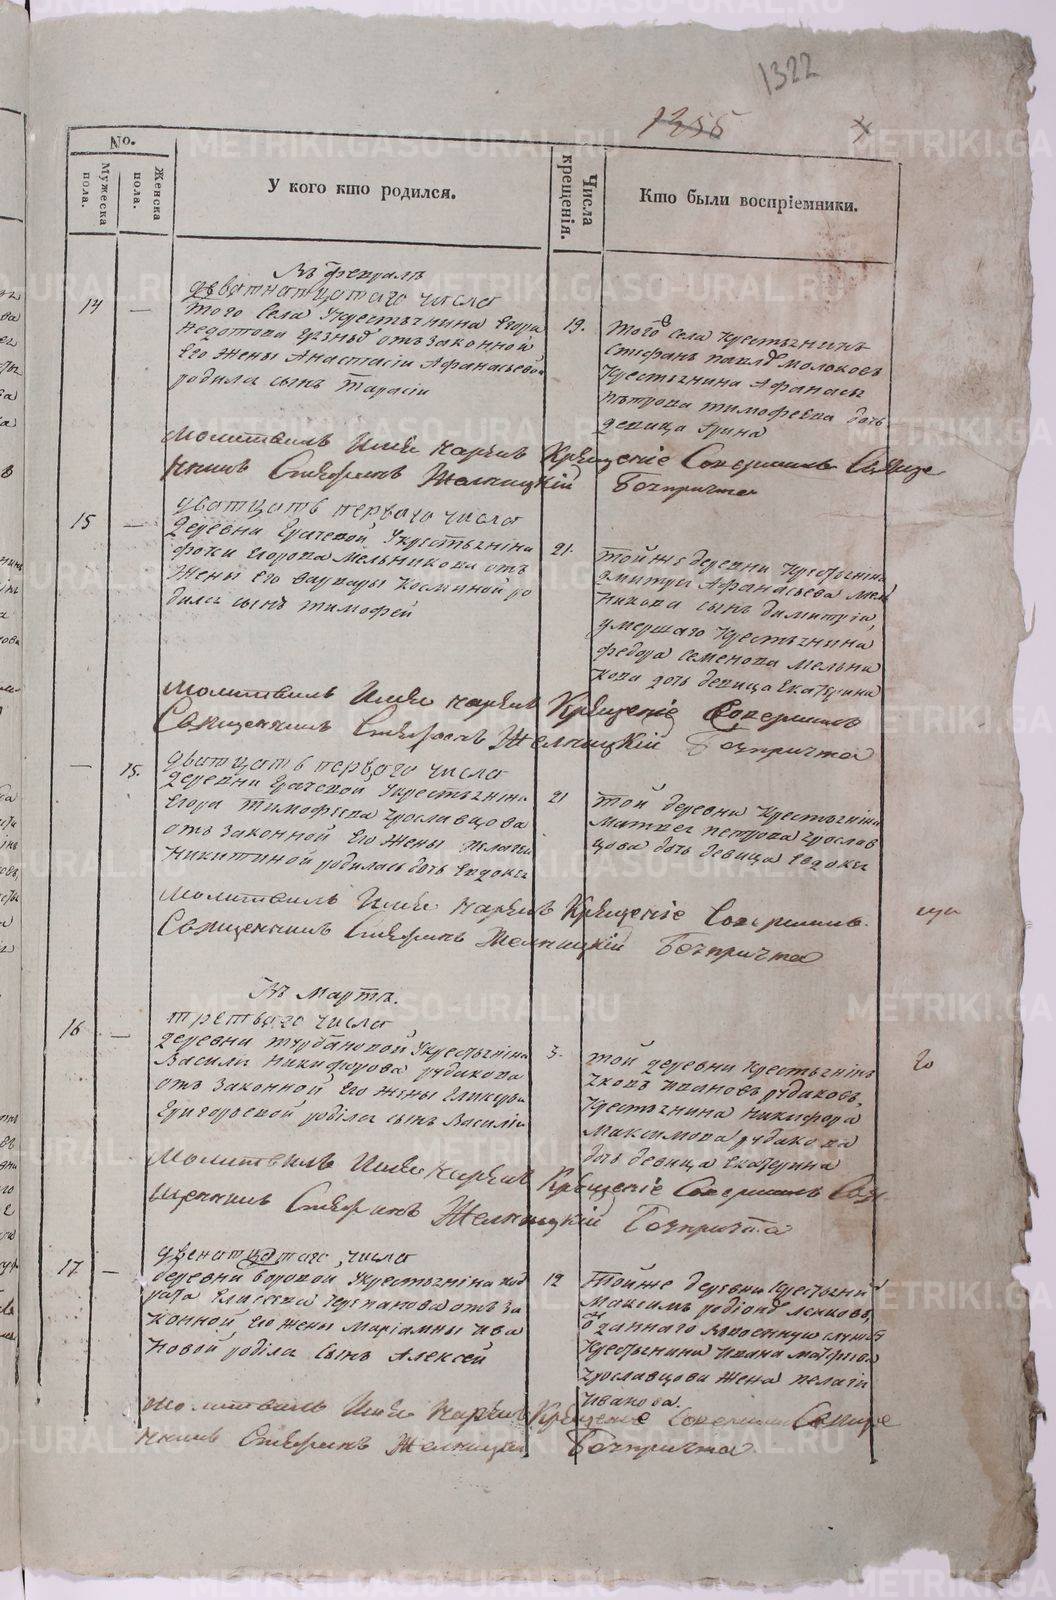 1322
1355
No.
Мужеска пола.
Женска пола.
У кого кто родился.
Числа крещенія.
Кто были воспріемники.
Въ февралѣ
14
—
дватнатцатаго числа
того села Укрестьянина Егора
отъ законной
Его жены Анастасіи Афанасьевой
родился сынъ Тарасій
19.
того села крестьянинъ
Стефанъ павлов Молоковъ
крестьянина Афанасья
петрова тимофеева дочь
девица Ирина
Молитвилъ Имя нарекъ Крещеніе Совершилъ Священ
никъ Стефанъ Желницкій Безпричта
15
—
дватцать перваго числа
деревни Грачевой Укрестьянина
фоки Егорова Мельникова отъ
жены Его варвары Косминой ро
дился сынъ тимофей
21.
той же деревни крестьянина
дмитрея Афанасьева Мел
никова сынъ димитрій,
умершаго крестьянина
федора семенова Мельни
кова дочь девица Екатерина
Молитвилъ Имя нарекъ Крещеніе Совершилъ
Священникъ Стефанъ Желницкій Безпричта
—
15.
дватцать перваго числа
деревни Грачевой Укрестьянина
Егора тимофеева Чуославцова
отъ законной Его жены пелагеи
Никитиной родилась дочь Евдокея
21
той деревни крестьянина
Матвея петрова Чуослав
цова дочь девица Евдокея
Молитвилъ Имя нарекъ Крещеніе Совершилъ
Священникъ Стефанъ Желницкій Безпричта
Въ Мартѣ.
16
—
третьяго числа
деревни турбановой Укрестьянина
Василья Никифорова рудакова
отъ законной Его жены Гликерьи
Григорьевой родился сынъ Василій
3.
той деревни крестьянинъ
Яковъ Ивановъ рудаковъ,
крестьянина Никифора
Максимова рудакова
дочь девица Екатерина
Молитвилъ Имя нарекъ Крещеніе Совершилъ Свя
щенникъ Стефанъ Желницкій Безпричта
17
—
двенатцатаго числа
деревни боровой Укрестьянина код
рата Елисеева черепанова отъ за
конной Его жены Маріамны Ива
новой родился сынъ Алексей
12
тойже деревни крестьянинъ
Максимъ родіонов
отданнаго ввоенную службу
крестьянина Ивана Матфеева
Чуославцова жена пелагія
Иванова.
Молитвилъ Имя нарекъ Крещеніе Совершилъ Священ
никъ Стефанъ Желницкій Безпричта
METRIKI.GASO-URAL.RU